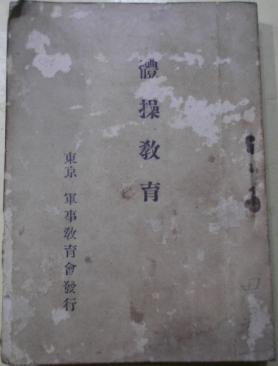 體操教育
東京 軍事教育會發行